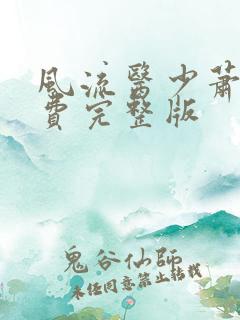 風流醫少蕭
費完整版
鬼谷仙師
未經同意禁止轉載